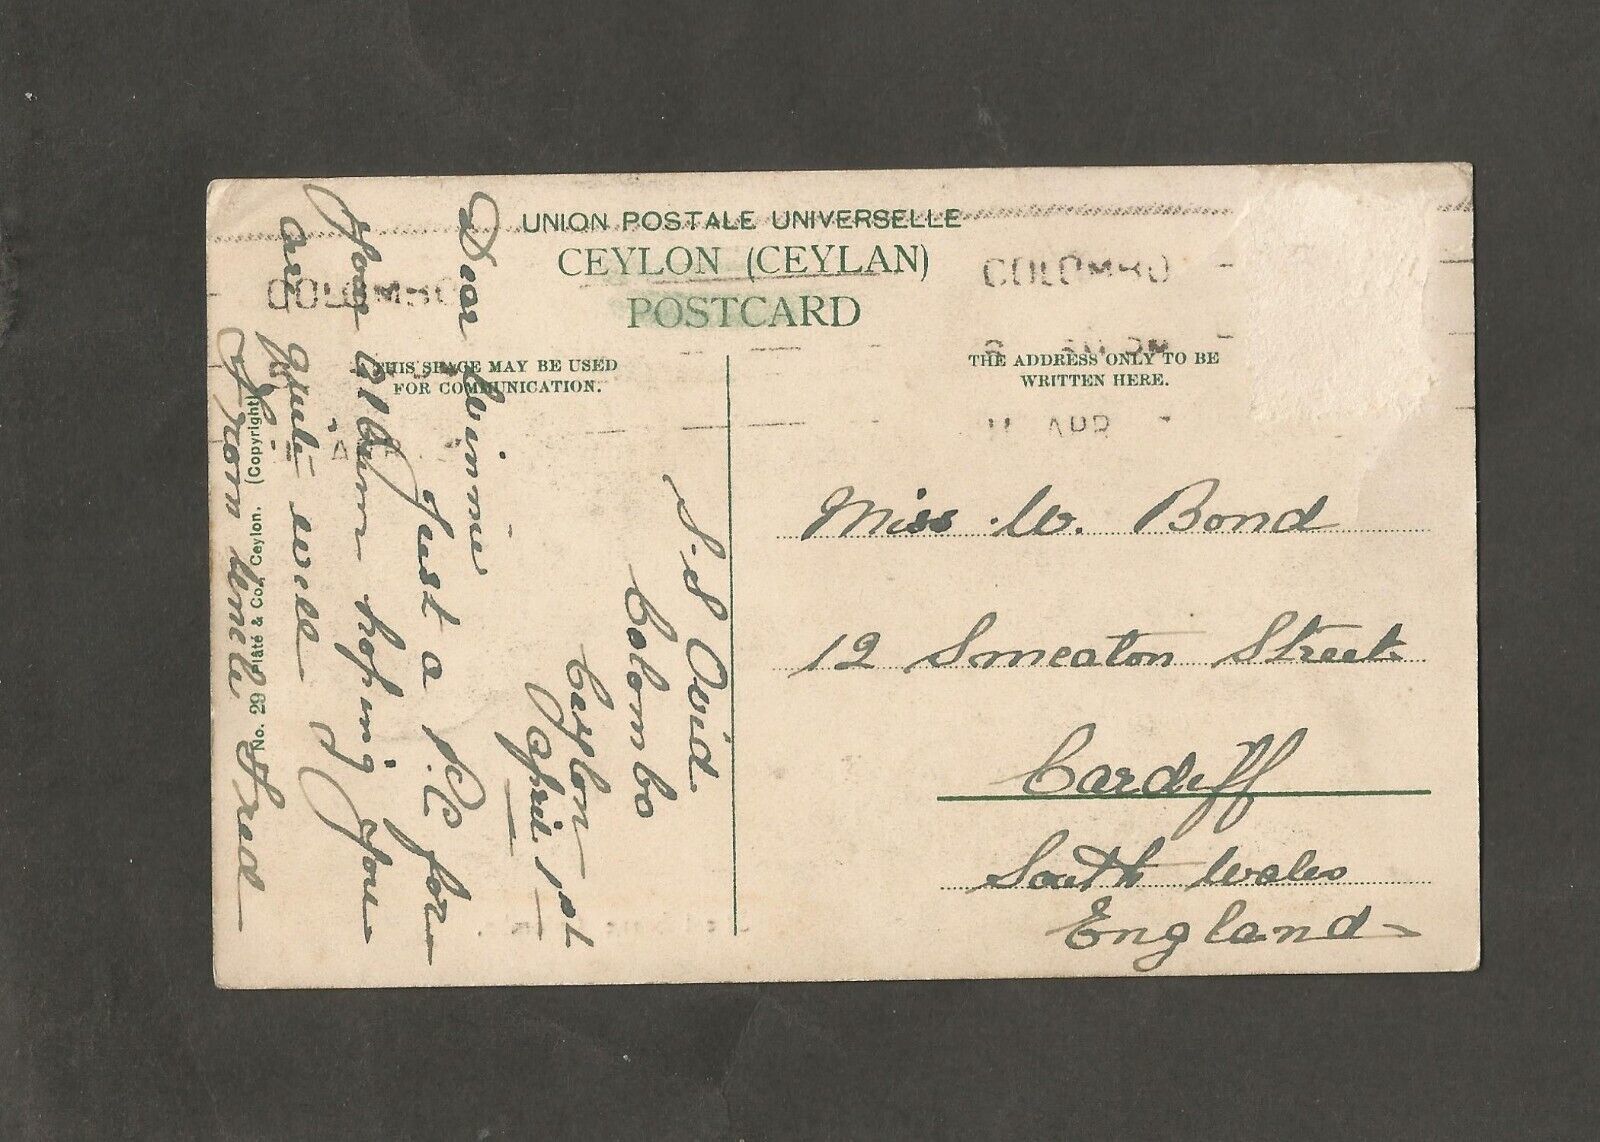 UNION POSTALE UNIVERSELLE
CEYLON (CEYLAN)
POSTCARD
THIS SPACE MAY BE USED
FOR COMMUNICATION.
THE ADDRESS ONLY TO BE
WRITTEN HERE.
COLOMBO
COLOMBO
APR
S.S Ovid
Colombo
Ceylon
April 1st
Dear Winnie
Just a P.C for
Your Album hoping You
are quite well
From Uncle Fred
Miss W. Bond
12 Smeaton Street
Cardiff
South Wales
England
No. 29 Plâté & Co., Ceylon. (Copyright)